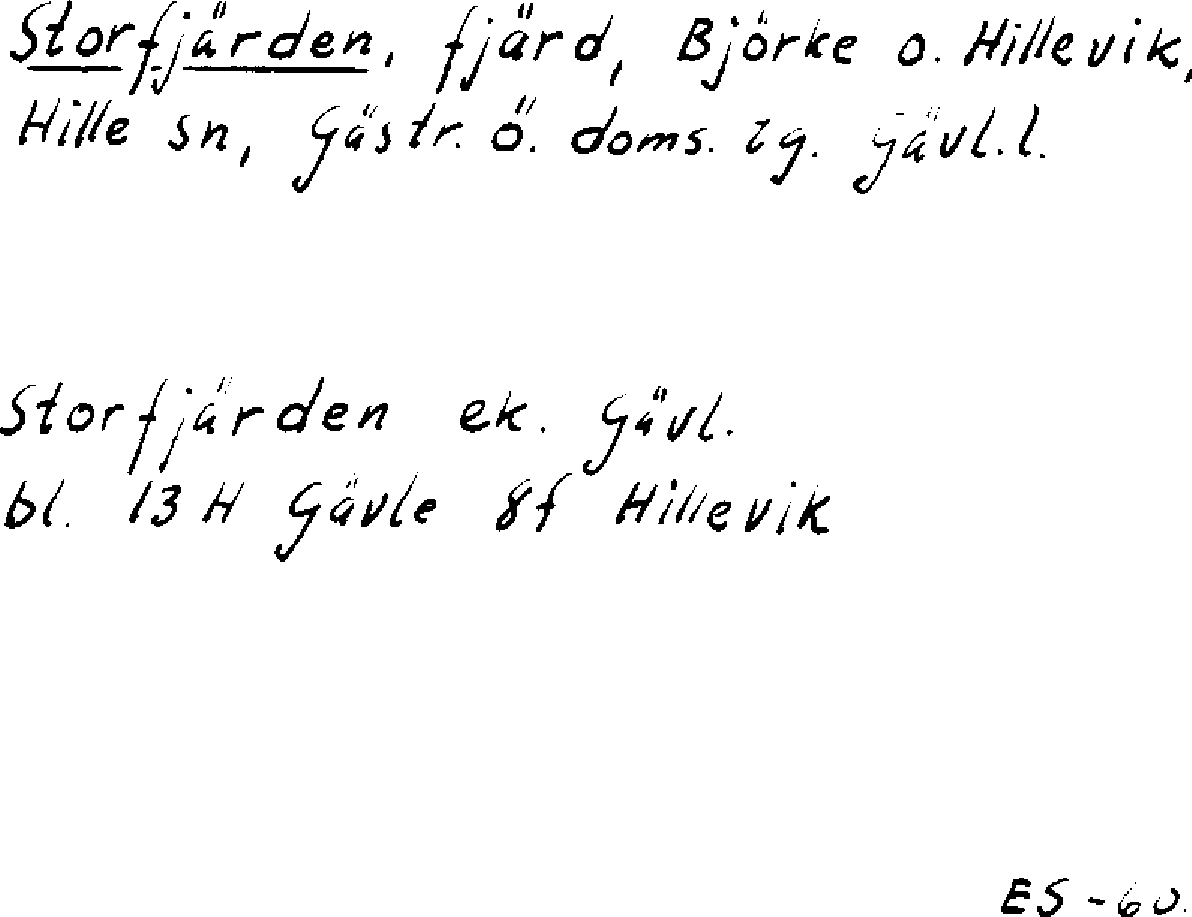 Storfjärden, fjärd, Björke o. Hillevik,
Hille sn, Gästr. Ö. doms. lg. Gävl.l.
Storfjärden ek. Gävl.
bl. 13 H Gävle 8f Hillevik
ES -60.